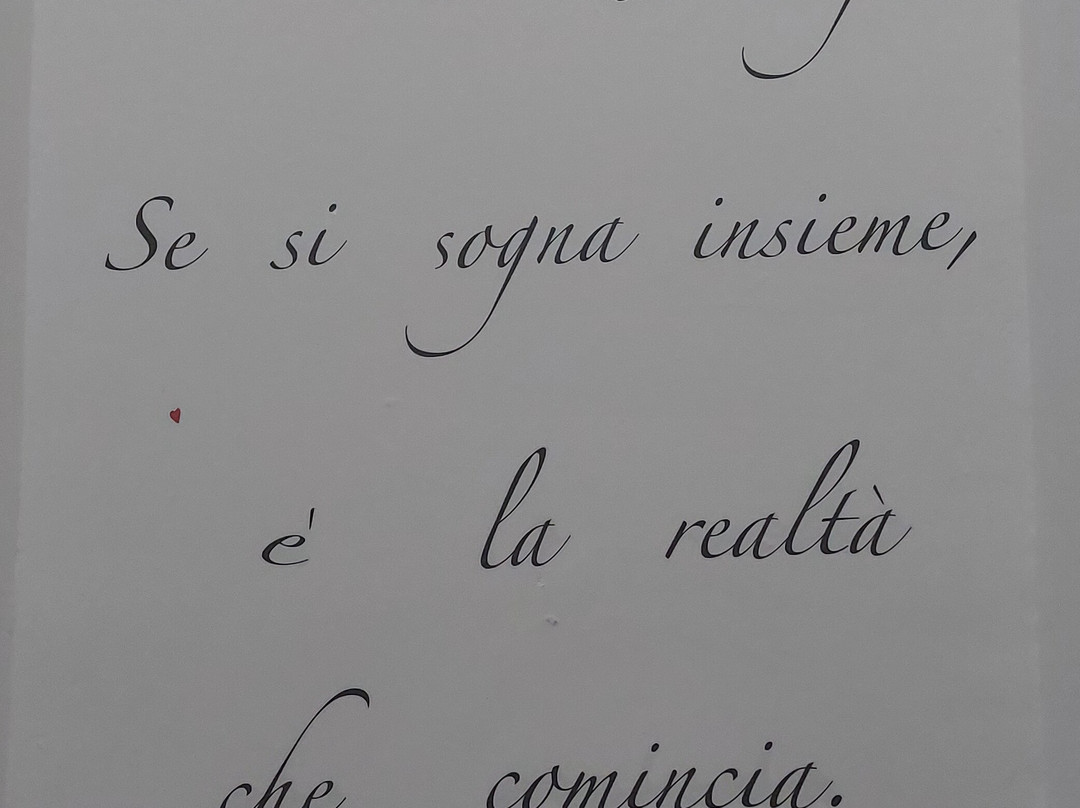 Se si sogna insieme,
è la realtà
che comincia.